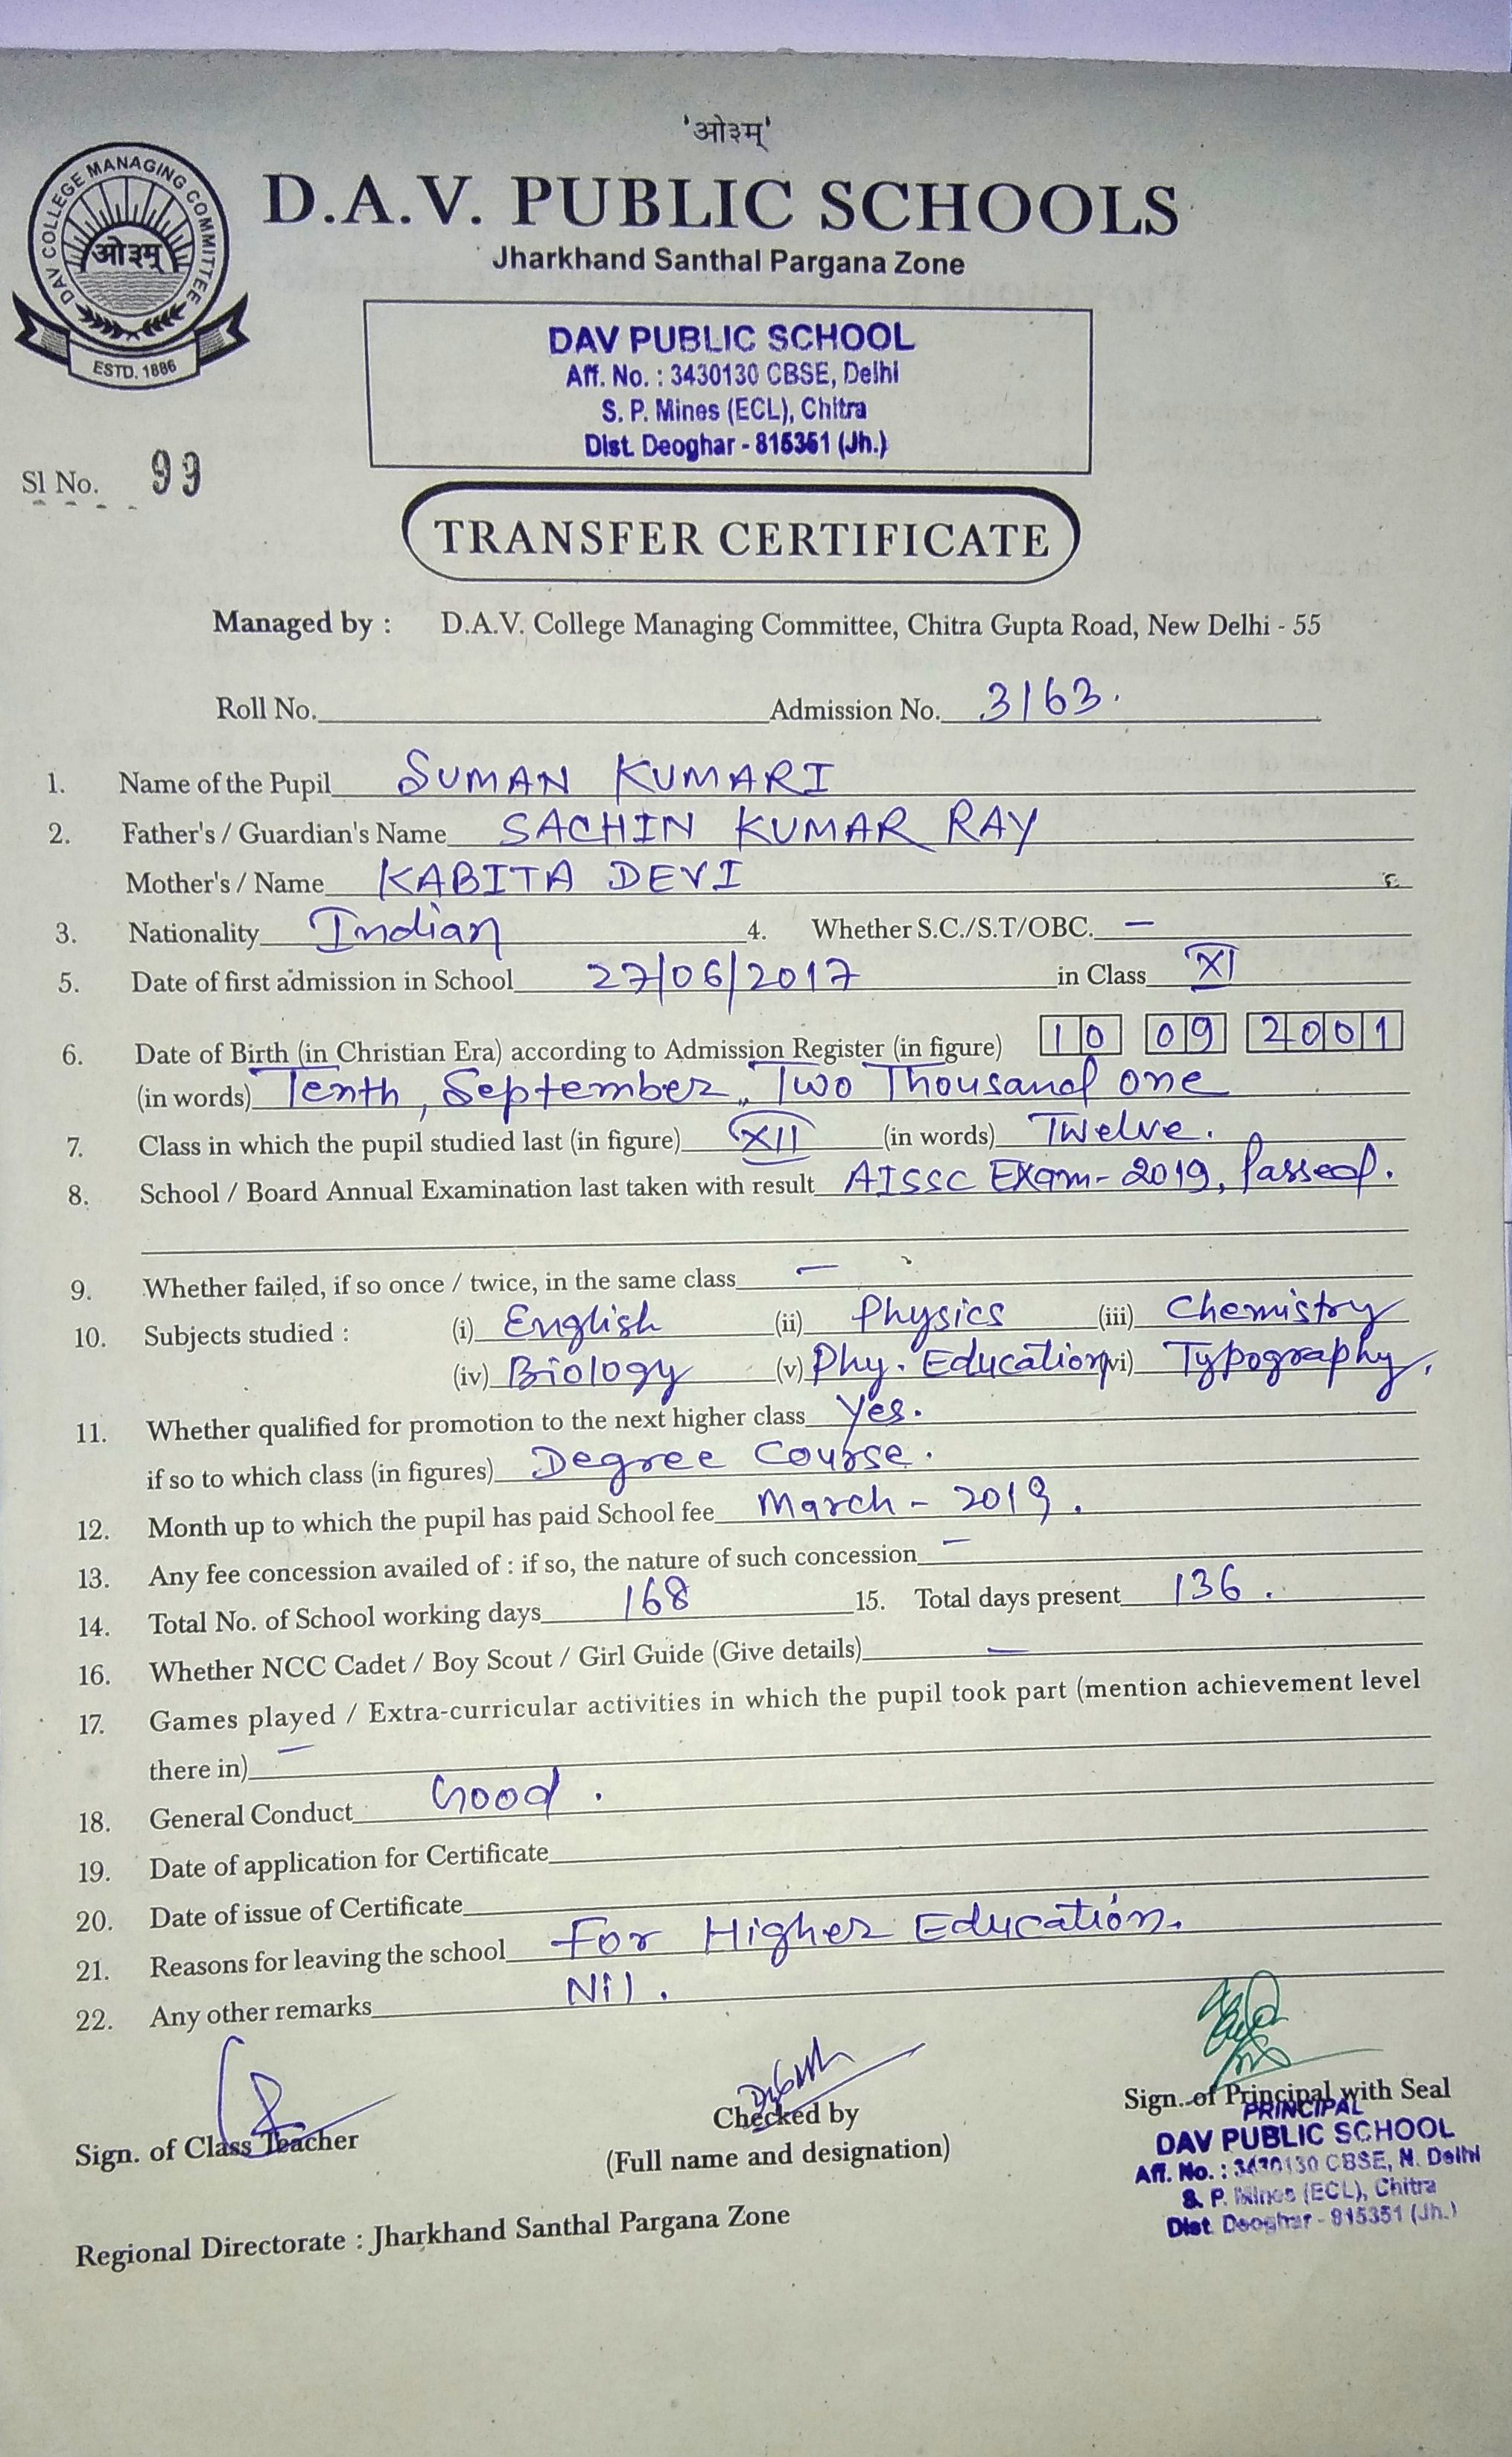 'ओ३म्'
DAV COLLEGE MANAGING COMMITTEE
ओ३म्
ESTD. 1886
D.A.V. PUBLIC SCHOOLS
Jharkhand Santhal Pargana Zone
DAV PUBLIC SCHOOL
Aff. No. : 3430130 CBSE, Delhi
S. P. Mines (ECL), Chitra
Dist. Deoghar - 815351 (Jh.)
Sl No. 99
TRANSFER CERTIFICATE
Managed by : D.A.V. College Managing Committee, Chitra Gupta Road, New Delhi - 55
Roll No. Admission No. 3163.
1. Name of the Pupil SUMAN KUMARI
2. Father's / Guardian's Name SACHIN KUMAR RAY
Mother's / Name KABITA DEVI
3. Nationality Indian 4. Whether S.C./S.T/OBC. —
5. Date of first admission in School 27/06/2017 in Class XI
6. Date of Birth (in Christian Era) according to Admission Register (in figure) 10 09 2001
(in words) Tenth, September, Two Thousand one
7. Class in which the pupil studied last (in figure) XII (in words) Twelve.
8. School / Board Annual Examination last taken with result AISSC Exam - 2019, Passed.
9. Whether failed, if so once / twice, in the same class —
10. Subjects studied : (i) English (ii) Physics (iii) Chemistry
(iv) Biology (v) Phy. Education (vi) Typography.
11. Whether qualified for promotion to the next higher class Yes.
if so to which class (in figures) Degree Course.
12. Month up to which the pupil has paid School fee March - 2019.
13. Any fee concession availed of : if so, the nature of such concession —
14. Total No. of School working days 168 15. Total days present 136.
16. Whether NCC Cadet / Boy Scout / Girl Guide (Give details) —
17. Games played / Extra-curricular activities in which the pupil took part (mention achievement level
there in) —
18. General Conduct Good.
19. Date of application for Certificate
20. Date of issue of Certificate
21. Reasons for leaving the school For Higher Education.
22. Any other remarks Nil.
Sign. of Class Teacher
Checked by
(Full name and designation)
Sign. of Principal with Seal
PRINCIPAL
DAV PUBLIC SCHOOL
Aff. No. : 3430130 CBSE, N. Delhi
S. P. Mines (ECL), Chitra
Dist. Deoghar - 815351 (Jh.)
Regional Directorate : Jharkhand Santhal Pargana Zone